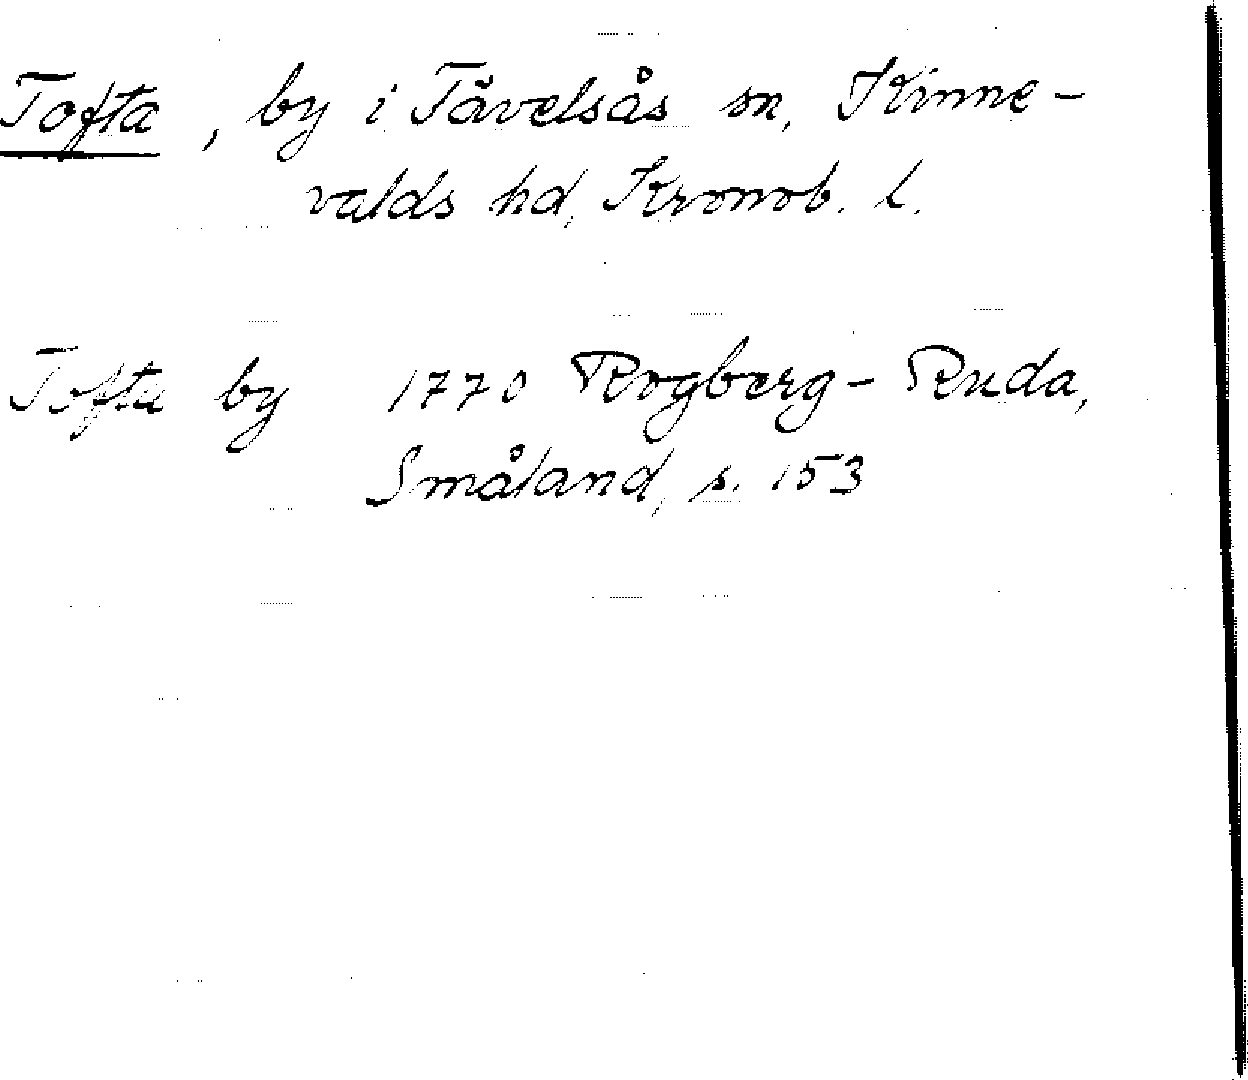 Tofta, by i Tävelsås sn, Kinne-
valds hd, Kronob. l.
Tofta by 1770 Rogberg-Ruda,
Småland, s. 153